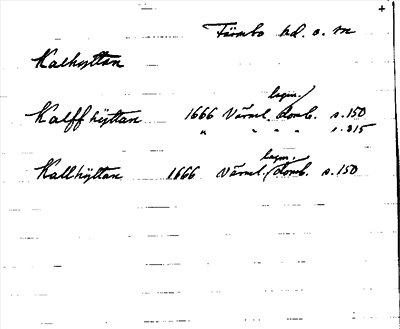 Färnbo hd. o. sn
Kalhyttan
Kalffhÿttan 1666 Värml. lagm./domb. s. 150
" " " " s. 315
Kallhÿttan 1666 Värml. lagm./domb. s. 150